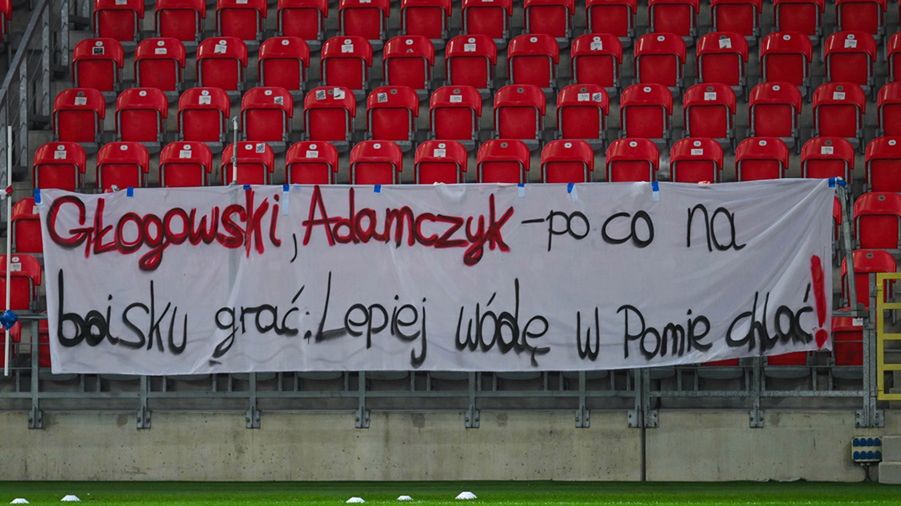 Głogowski, Adamczyk - po co na
boisku grać: Lepiej wódę w Pomie chlać!